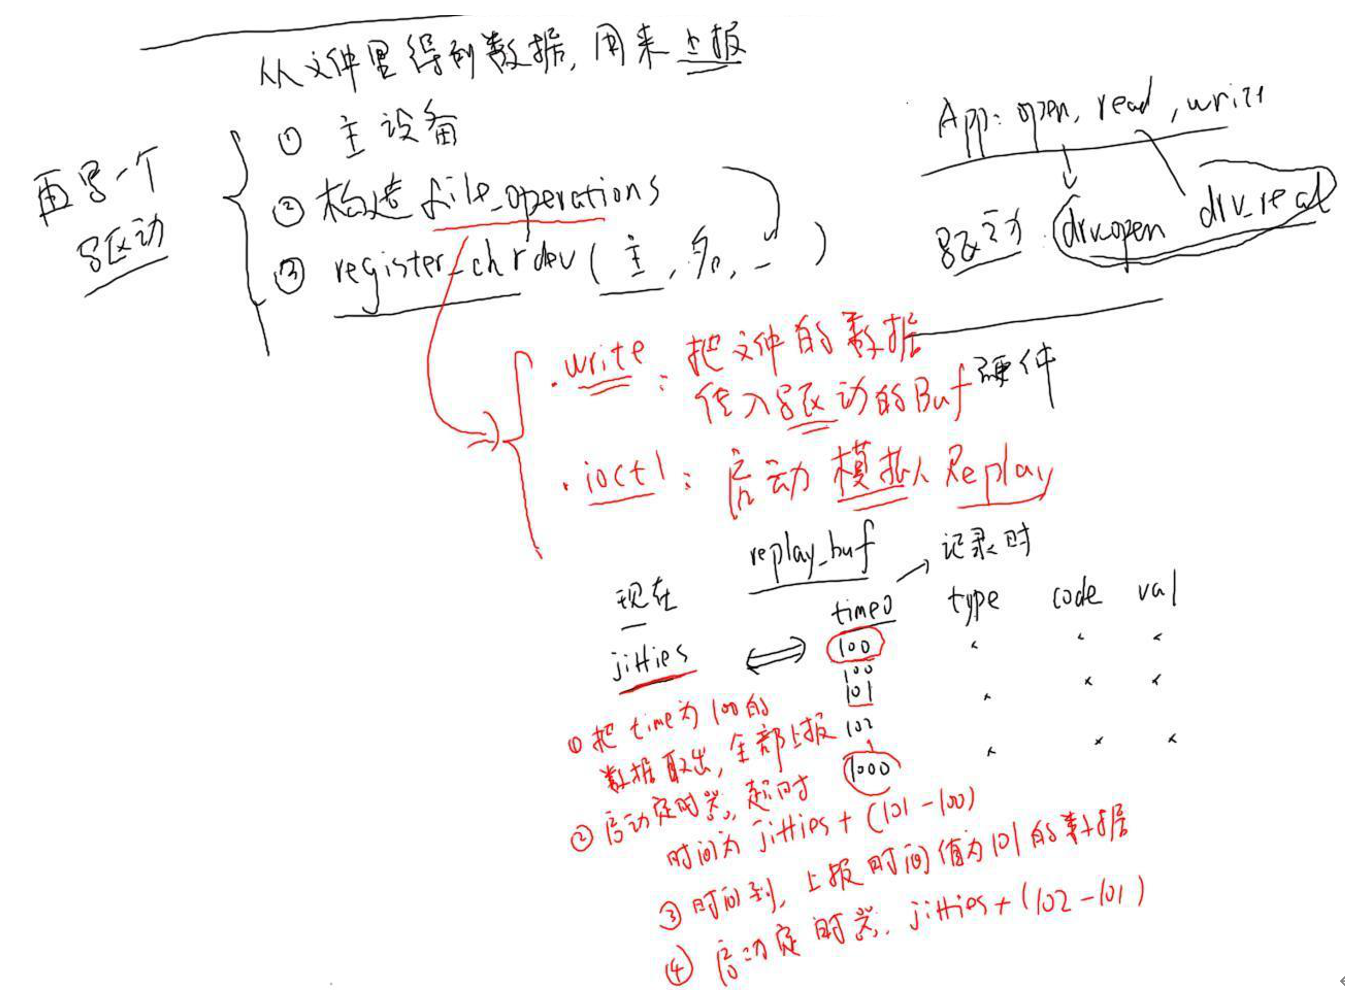 从文件里得到数据,用来上报
再写一个
驱动
① 主设备
② 构造file_operations
③ register_chrdev(主,名,_)
App: open, read, write
驱动: drv_open drv_read
硬件
.write: 把文件的数据
传入驱动的Buf
.ioctl: 启动模拟 Replay
replay_buf
记录时
现在
jiffies
time0 type code val
100
100
101
102
1000
① 把time为100的
数据取出,全部上报
② 启动定时器,超时
时间为jiffies+(101-100)
③ 时间到,上报时间值为101的数据
④ 启动定时器. jiffies+(102-101)